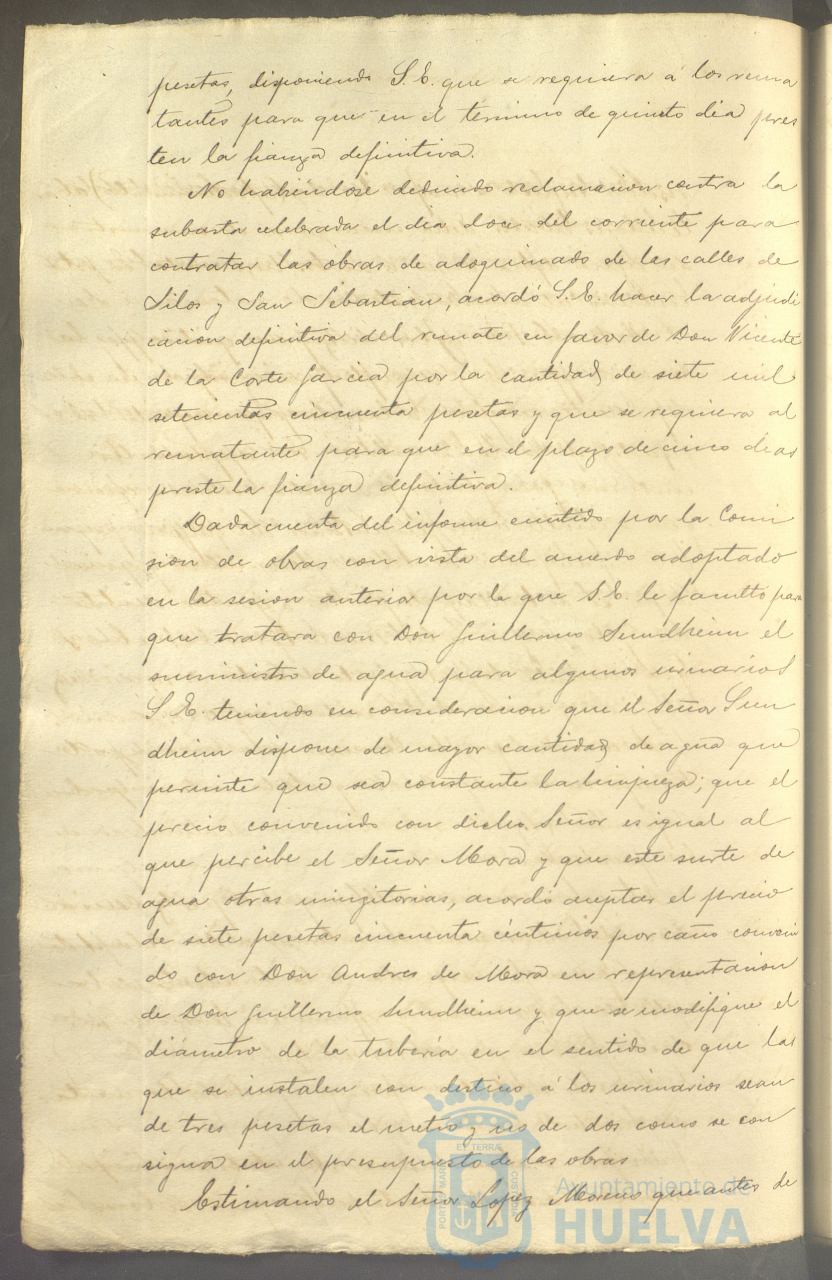 pesetas, disponiendo S.E. que se requiera á los rema
tantes para que en el término de quinto dia pres
ten la fianza definitiva.
No habiéndose deducido reclamacion contra la
subasta celebrada el dia doce del corriente para
contratar las obras de adoquinado de las calles de
Silos y San Sebastian, acordó S.E. hacer la adjudi
cacion definitiva del remate en favor de Don Vicente
de la Corte Garcia por la cantidad de siete mil
setecientas cincuenta pesetas y que se requiera al
rematante para que en el plazo de cinco dias
preste la fianza definitiva.
Dada cuenta del informe emitido por la Comi
sion de obras con vista del acuerdo adoptado
en la sesion anterior por la que S.E. le facultó para
que tratara con Don Guillermo Sundheim el
suministro de agua para algunos urinarios
S.E. teniendo en consideracion que el Señor Sun
dheim dispone de mayor cantidad de agua que
permite que sea constante la limpieza; que el
precio convenido con dicho Señor es igual al
que percibe el Señor Mora y que este surte de
agua otras mingitorias, acordó aceptar el precio
de siete pesetas cincuenta céntimos por caño conveni
do con Don Andres de Mora en representacion
de Don Guillermo Sundheim y que se modifique el
diámetro de la tuberia en el sentido de que las
que se instalen con destino á los urinarios sean
de tres pesetas el metro y no de dos como se con
signa en el presupuesto de las obras
Estimando el Señor Lopez Moreno que antes de
Ayuntamiento de
HUELVA